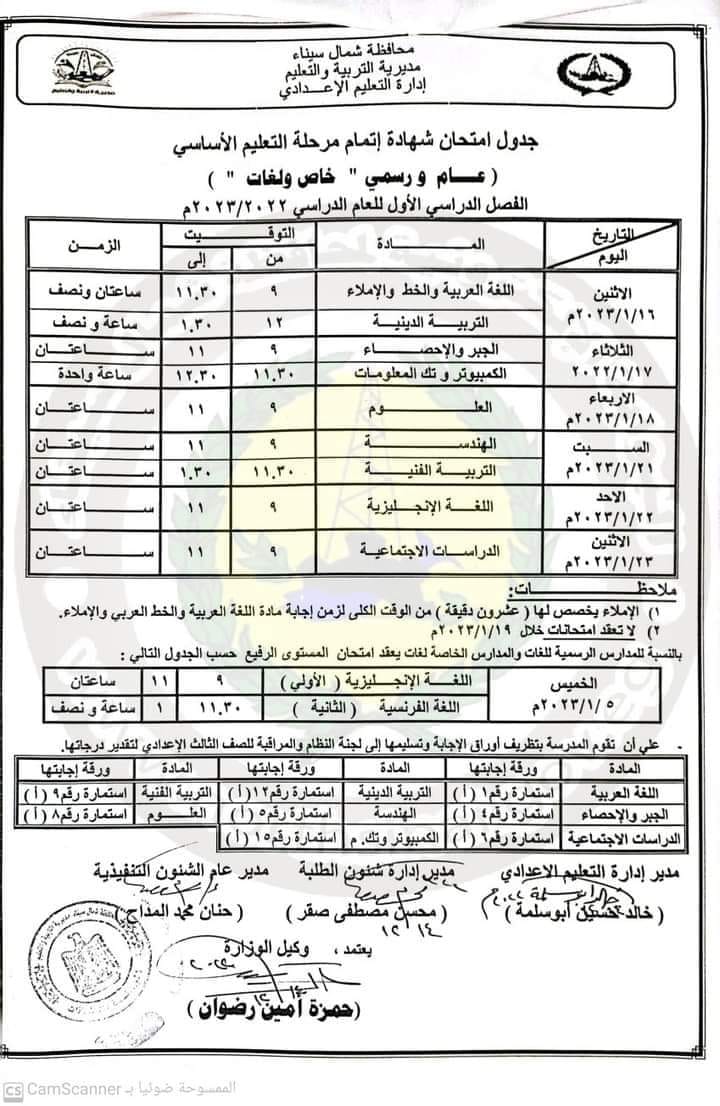 محافظة شمال سيناء
مديرية التربية والتعليم
إدارة التعليم الإعدادي
جدول امتحان شهادة إتمام مرحلة التعليم الأساسي
( عـــام و رسمي " خاص ولغات " )
الفصل الدراسي الأول للعام الدراسي ٢٠٢٣/٢٠٢٢م
التاريخ اليوم المـــادة التوقيت الزمن
من إلى
الاثنين ٢٠٢٣/١/١٦م اللغة العربية والخط والإملاء ٩ ١١.٣٠ ساعتان ونصف
التربيــة الدينية ١٢ ١.٣٠ ساعة و نصف
الثلاثاء ٢٠٢٢/١/١٧ الجبر والإحصـــاء ٩ ١١ ســـاعتـــان
الكمبيوتر و تك المعلومات ١١.٣٠ ١٢.٣٠ ساعة واحدة
الاربعاء ٢٠٢٣/١/١٨م العلـــوم ٩ ١١ ســـاعتـــان
الســبت ٢٠٢٣/١/٢١م الهندســـة ٩ ١١ ســـاعتـــان
التربيــة الفنية ١١.٣٠ ١.٣٠ ســـاعتـــان
الاحد ٢٠٢٣/١/٢٢م اللغــة الإنجليزية ٩ ١١ ســـاعتـــان
الاثنين ٢٠٢٣/١/٢٣م الدراسات الاجتماعية ٩ ١١ ســـاعتـــان
ملاحظـــات:
١) الإملاء يخصص لها ( عشرون دقيقة ) من الوقت الكلى لزمن إجابة مادة اللغة العربية والخط العربي والإملاء.
٢) لا تعقد امتحانات خلال ٢٠٢٣/١/١٩م
بالنسبة للمدارس الرسمية للغات والمدارس الخاصة لغات يعقد امتحان المستوى الرفيع حسب الجدول التالي :
الخميس ٢٠٢٣/١/٥م اللغــة الإنجليزية ( الأولي ) ٩ ١١ ساعتان
اللغة الفرنسية ( الثانية ) ١١.٣٠ ١ ساعة و نصف
- علي أن تقوم المدرسة بتظريف أوراق الإجابة وتسليمها إلى لجنة النظام والمراقبة للصف الثالث الإعدادي لتقدير درجاتها.
المادة ورقة إجابتها المادة ورقة إجابتها المادة ورقة إجابتها
اللغة العربية استمارة رقم١ ( أ ) التربية الدينية استمارة رقم١٢ ( أ ) التربية الفنية استمارة رقم٩ ( أ )
الجبر والإحصاء استمارة رقم٤ ( أ ) الهندسة استمارة رقم٥ ( أ ) العلـــوم استمارة رقم٨ ( أ )
الدراسات الاجتماعية استمارة رقم٦ ( أ ) الكمبيوتر وتك. م استمارة رقم١٥ ( أ )
مدير إدارة التعليم الإعدادي مدير إدارة شئون الطلبة مدير عام الشئون التنفيذية
( خالد حسنين أبوسلمة ) ( محسن مصطفى صقر ) ( حنان محمد المداح )
١٢/١٤
يعتمد ، وكيل الوزارة
(حمزة أمين رضوان )
CS CamScanner الممسوحة ضوئيا بـ